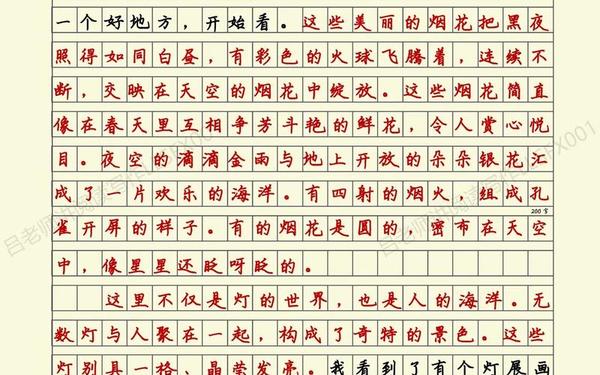 一个好地方，开始看。这些美丽的烟花把黑夜
照得如同白昼，有彩色的火球飞腾着，连续不
断，交映在天空的烟花中绽放。这些烟花简直
像在春天里互相争芳斗艳的鲜花，令人赏心悦
目。夜空的滴滴金雨与地上开放的朵朵银花汇
成了一片欢乐的海洋。有四射的烟火，组成孔
200字
雀开屏的样子。有的烟花是圆的，密布在天空
中，像星星还眨呀眨的。
这里不仅是灯的世界，也是人的海洋。无
数灯与人聚在一起，构成了奇特的景色。这些
灯别具一格、晶莹发亮。我看到了有个灯展画